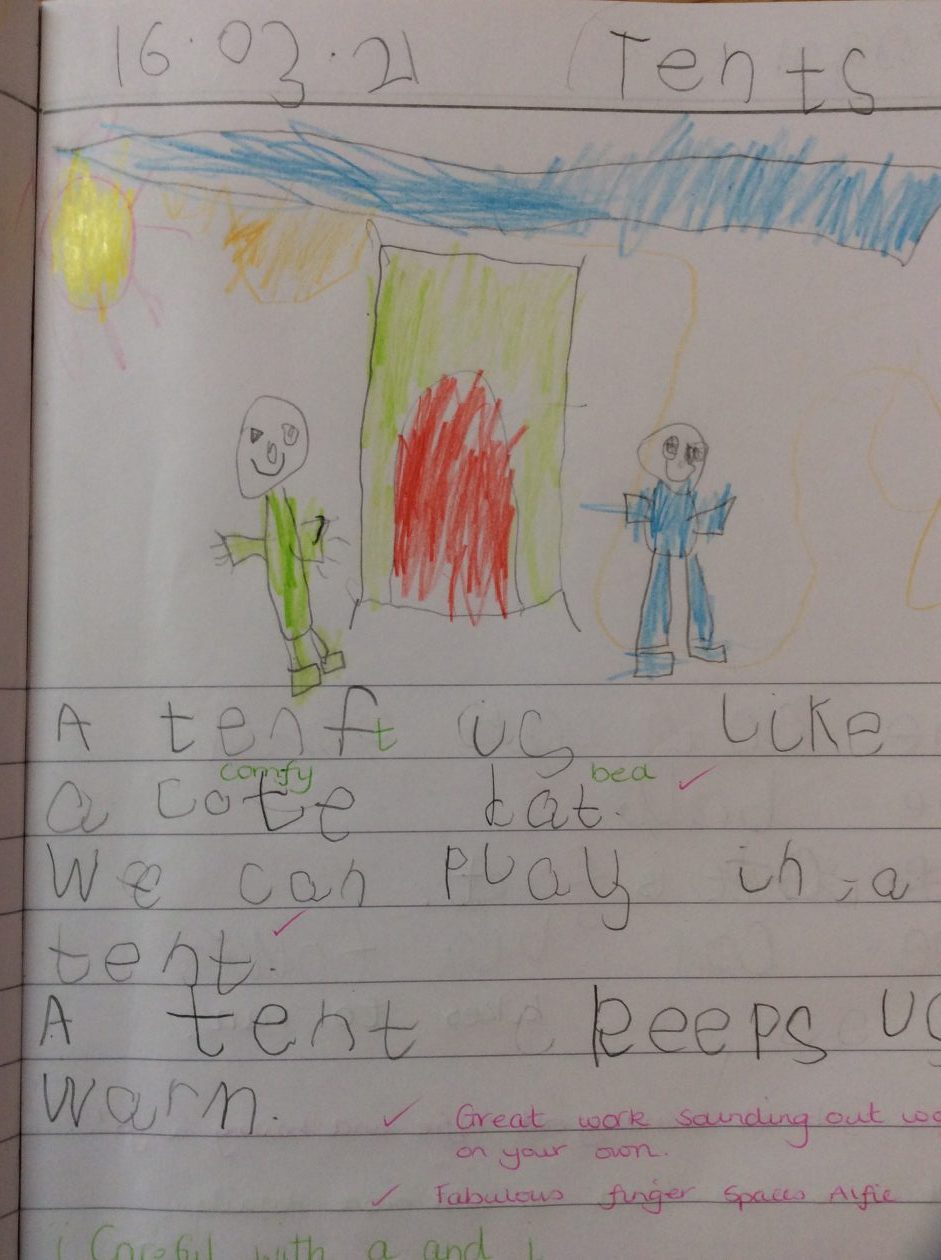 16.03.21 Tents
A tenft us like
comfy bed
a cote bat.
We can play in a
tent.
A tent keeps us
warn.
Great work sounding out
on your own.
Fabulous finger spaces Alfie
Careful with a and